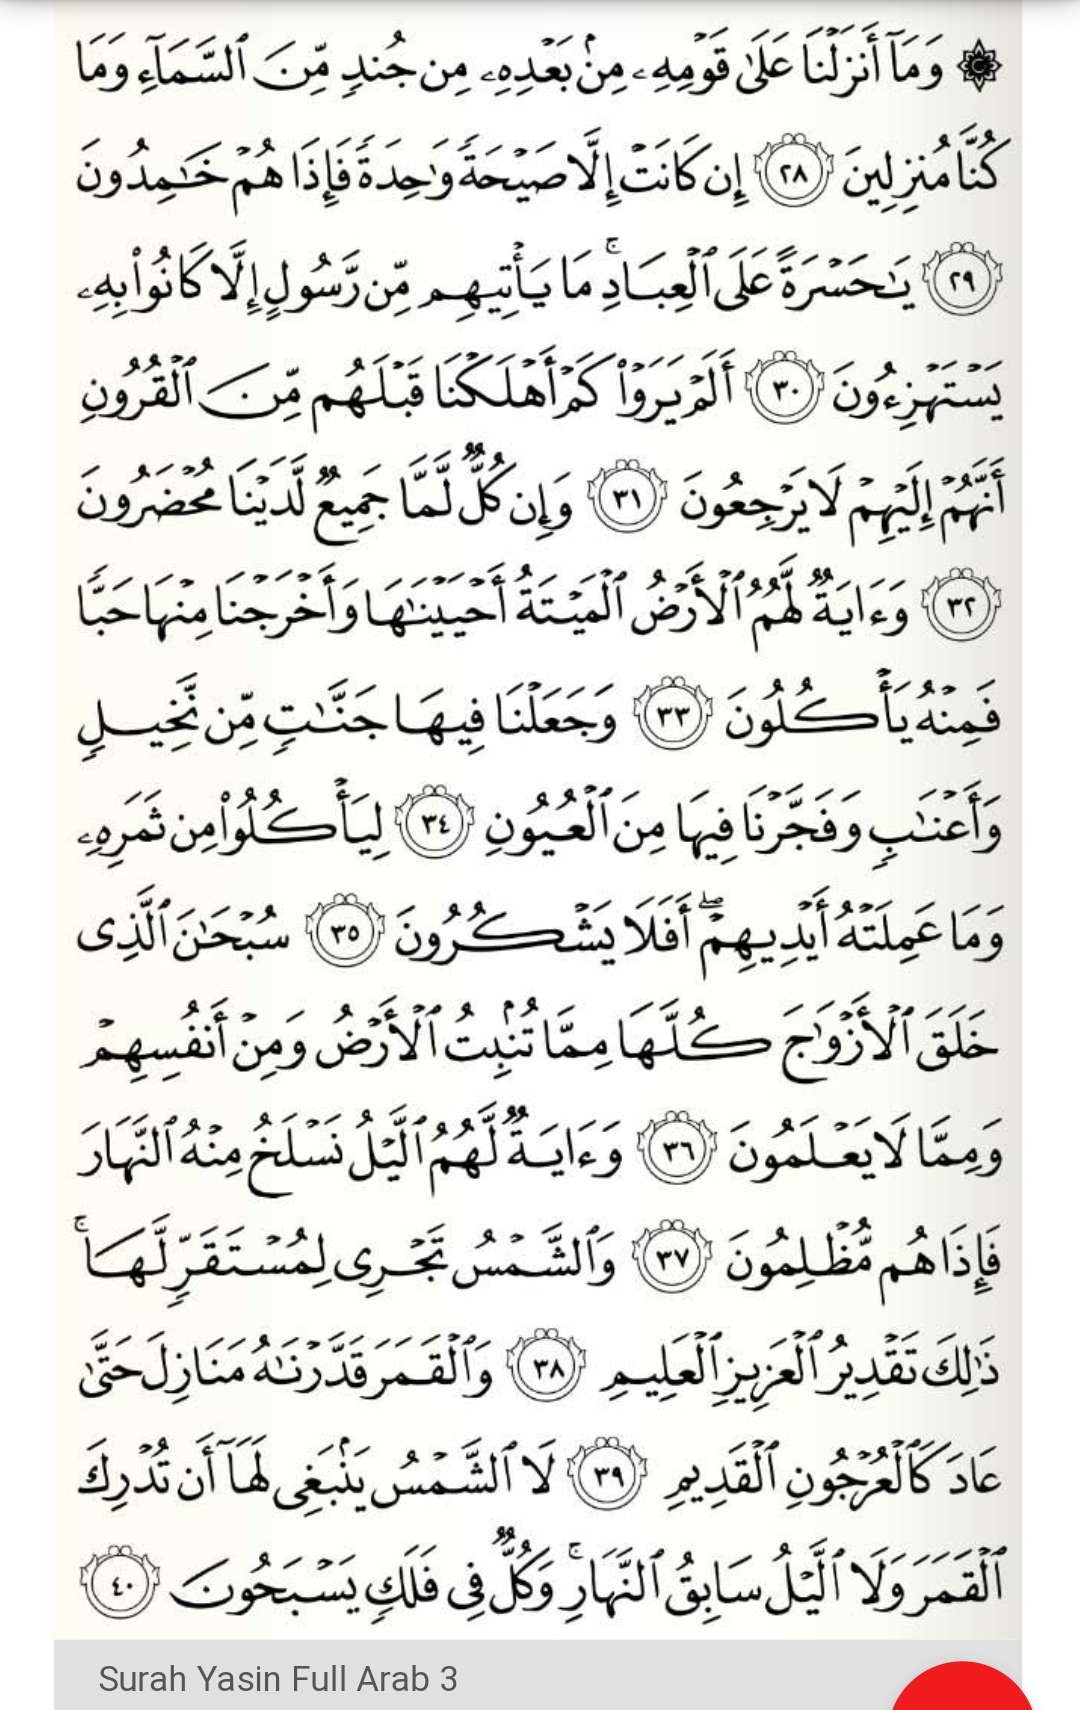 ۞ وَمَآ أَنزَلْنَا عَلَىٰ قَوْمِهِۦ مِنۢ بَعْدِهِۦ مِن جُندٍ مِّنَ ٱلسَّمَآءِ وَمَا
كُنَّا مُنزِلِينَ ٢٨ إِن كَانَتْ إِلَّا صَيْحَةً وَٰحِدَةً فَإِذَا هُمْ خَـٰمِدُونَ
٢٩ يَـٰحَسْرَةً عَلَى ٱلْعِبَادِ ۚ مَا يَأْتِيهِم مِّن رَّسُولٍ إِلَّا كَانُوا۟ بِهِۦ
يَسْتَهْزِءُونَ ٣٠ أَلَمْ يَرَوْا۟ كَمْ أَهْلَكْنَا قَبْلَهُم مِّنَ ٱلْقُرُونِ
أَنَّهُمْ إِلَيْهِمْ لَا يَرْجِعُونَ ٣١ وَإِن كُلٌّ لَّمَّا جَمِيعٌ لَّدَيْنَا مُحْضَرُونَ
٣٢ وَءَايَةٌ لَّهُمُ ٱلْأَرْضُ ٱلْمَيْتَةُ أَحْيَيْنَـٰهَا وَأَخْرَجْنَا مِنْهَا حَبًّا
فَمِنْهُ يَأْكُلُونَ ٣٣ وَجَعَلْنَا فِيهَا جَنَّـٰتٍ مِّن نَّخِيلٍ
وَأَعْنَـٰبٍ وَفَجَّرْنَا فِيهَا مِنَ ٱلْعُيُونِ ٣٤ لِيَأْكُلُوا۟ مِن ثَمَرِهِۦ
وَمَا عَمِلَتْهُ أَيْدِيهِمْ ۖ أَفَلَا يَشْكُرُونَ ٣٥ سُبْحَـٰنَ ٱلَّذِى
خَلَقَ ٱلْأَزْوَٰجَ كُلَّهَا مِمَّا تُنۢبِتُ ٱلْأَرْضُ وَمِنْ أَنفُسِهِمْ
وَمِمَّا لَا يَعْلَمُونَ ٣٦ وَءَايَةٌ لَّهُمُ ٱلَّيْلُ نَسْلَخُ مِنْهُ ٱلنَّهَارَ
فَإِذَا هُم مُّظْلِمُونَ ٣٧ وَٱلشَّمْسُ تَجْرِى لِمُسْتَقَرٍّ لَّهَا ۚ
ذَٰلِكَ تَقْدِيرُ ٱلْعَزِيزِ ٱلْعَلِيمِ ٣٨ وَٱلْقَمَرَ قَدَّرْنَـٰهُ مَنَازِلَ حَتَّىٰ
عَادَ كَٱلْعُرْجُونِ ٱلْقَدِيمِ ٣٩ لَا ٱلشَّمْسُ يَنۢبَغِى لَهَآ أَن تُدْرِكَ
ٱلْقَمَرَ وَلَا ٱلَّيْلُ سَابِقُ ٱلنَّهَارِ ۚ وَكُلٌّ فِى فَلَكٍ يَسْبَحُونَ ٤٠
Surah Yasin Full Arab 3